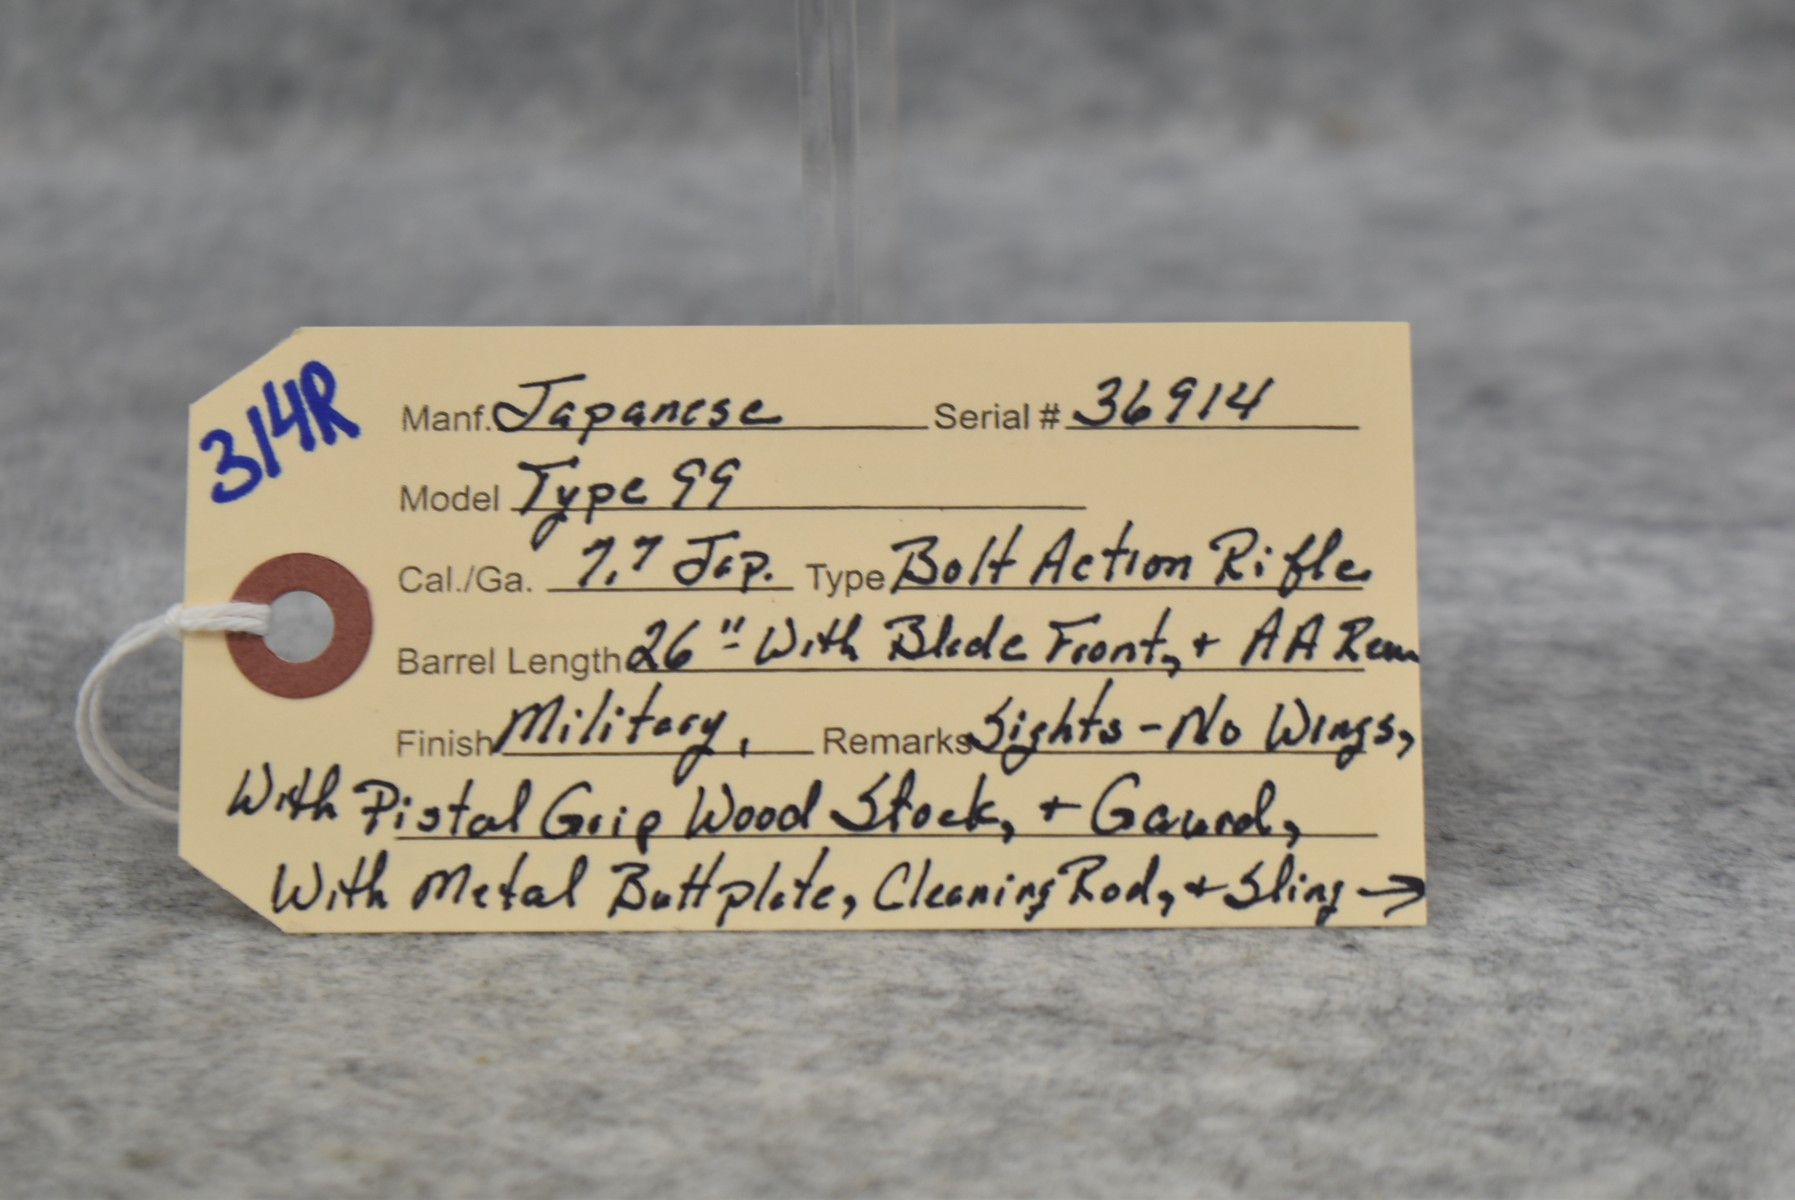 314R
Manf. Japanese Serial # 36914
Model Type 99
Cal./Ga. 7.7 Jap. Type Bolt Action Rifle
Barrel Length 26" With Blade Front, + AA Rear
Finish Military, Remarks Sights - No Wings,
With Pistal Grip Wood Stock, + Gaurd,
With Metal Buttplate, Cleaning Rod, + Sling →